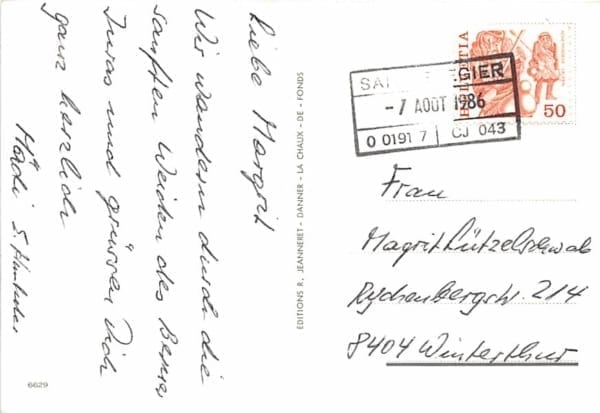 Liebe Margrit
Wir wandern durch die
sanften Weiden des Berner
Juras und grüssen Dich
ganz herzlich
Hädi
6629
EDITIONS R. JEANNERET - DANNER - LA CHAUX - DE - FONDS
HELVETIA
50
SAI GIER
- 7 AOUT 1986
0 0191 7 CJ 043
Frau
Magrit Lützelschwab
Rychenbergstr. 214
8404 Winterthur